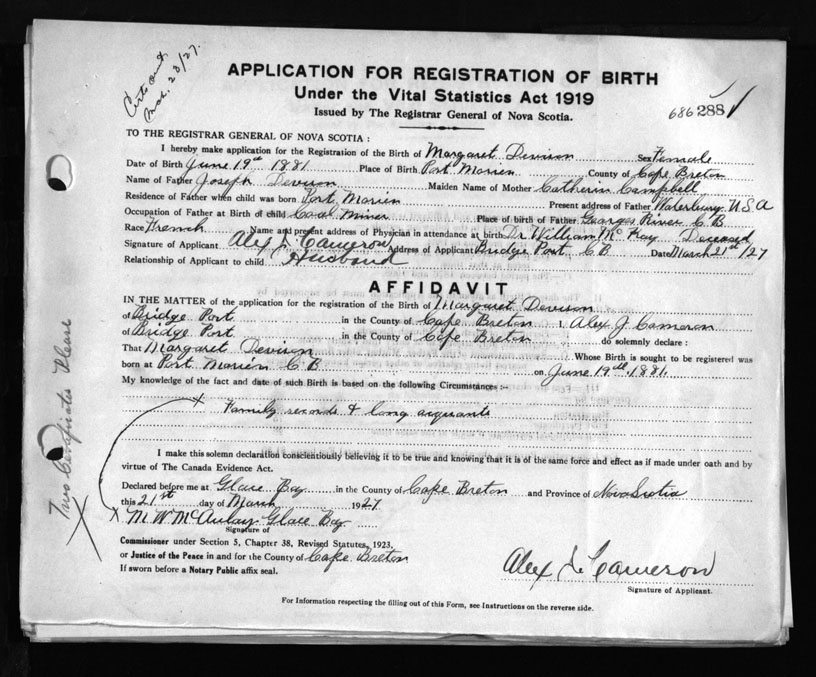 Certs sent
Mar. 28/27.
APPLICATION FOR REGISTRATION OF BIRTH
Under the Vital Statistics Act 1919
Issued by The Registrar General of Nova Scotia.
686 288
TO THE REGISTRAR GENERAL OF NOVA SCOTIA :
I hereby make application for the Registration of the Birth of Margaret Devison Sex Female
Date of Birth June 19th 1881 Place of Birth Port Morien County of Cape Breton
Name of Father Joseph Devison Maiden Name of Mother Catherin Campbell
Residence of Father when child was born Port Morien Present address of Father Waterbury U.S.A
Occupation of Father at Birth of child Coal Miner Place of birth of Father Georges River C B
Race French Name and present address of Physician in attendance at birth Dr William Mc Kay Deceased
Signature of Applicant Alex J. Cameron Address of Applicant Bridge Port C B Date March 21st/27
Relationship of Applicant to child Husband
AFFIDAVIT
IN THE MATTER of the application for the registration of the Birth of Margaret Devison
of Bridge Port in the County of Cape Breton I Alex J Cameron
of Bridge Port in the County of Cape Breton do solemnly declare :
That Margaret Devison Whose Birth is sought to be registered was
born at Port Morien C B on June 19th 1881.
My knowledge of the fact and date of such Birth is based on the following Circumstances :-
x Family records & long
I make this solemn declaration conscientiously believing it to be true and knowing that it is of the same force and effect as if made under oath and by
virtue of The Canada Evidence Act.
Declared before me at Glace Bay in the County of Cape Breton and Province of Nova Scotia
this 21st day of March 1927.
x M. W McAulay Glace Bay
Signature of
Commissioner under Section 5, Chapter 38, Revised Statutes, 1923.
or Justice of the Peace in and for the County of Cape Breton
If sworn before a Notary Public affix seal.
Alex J. Cameron
Signature of Applicant.
For Information respecting the filling out of this Form, see Instructions on the reverse side.
Two Certificates Please